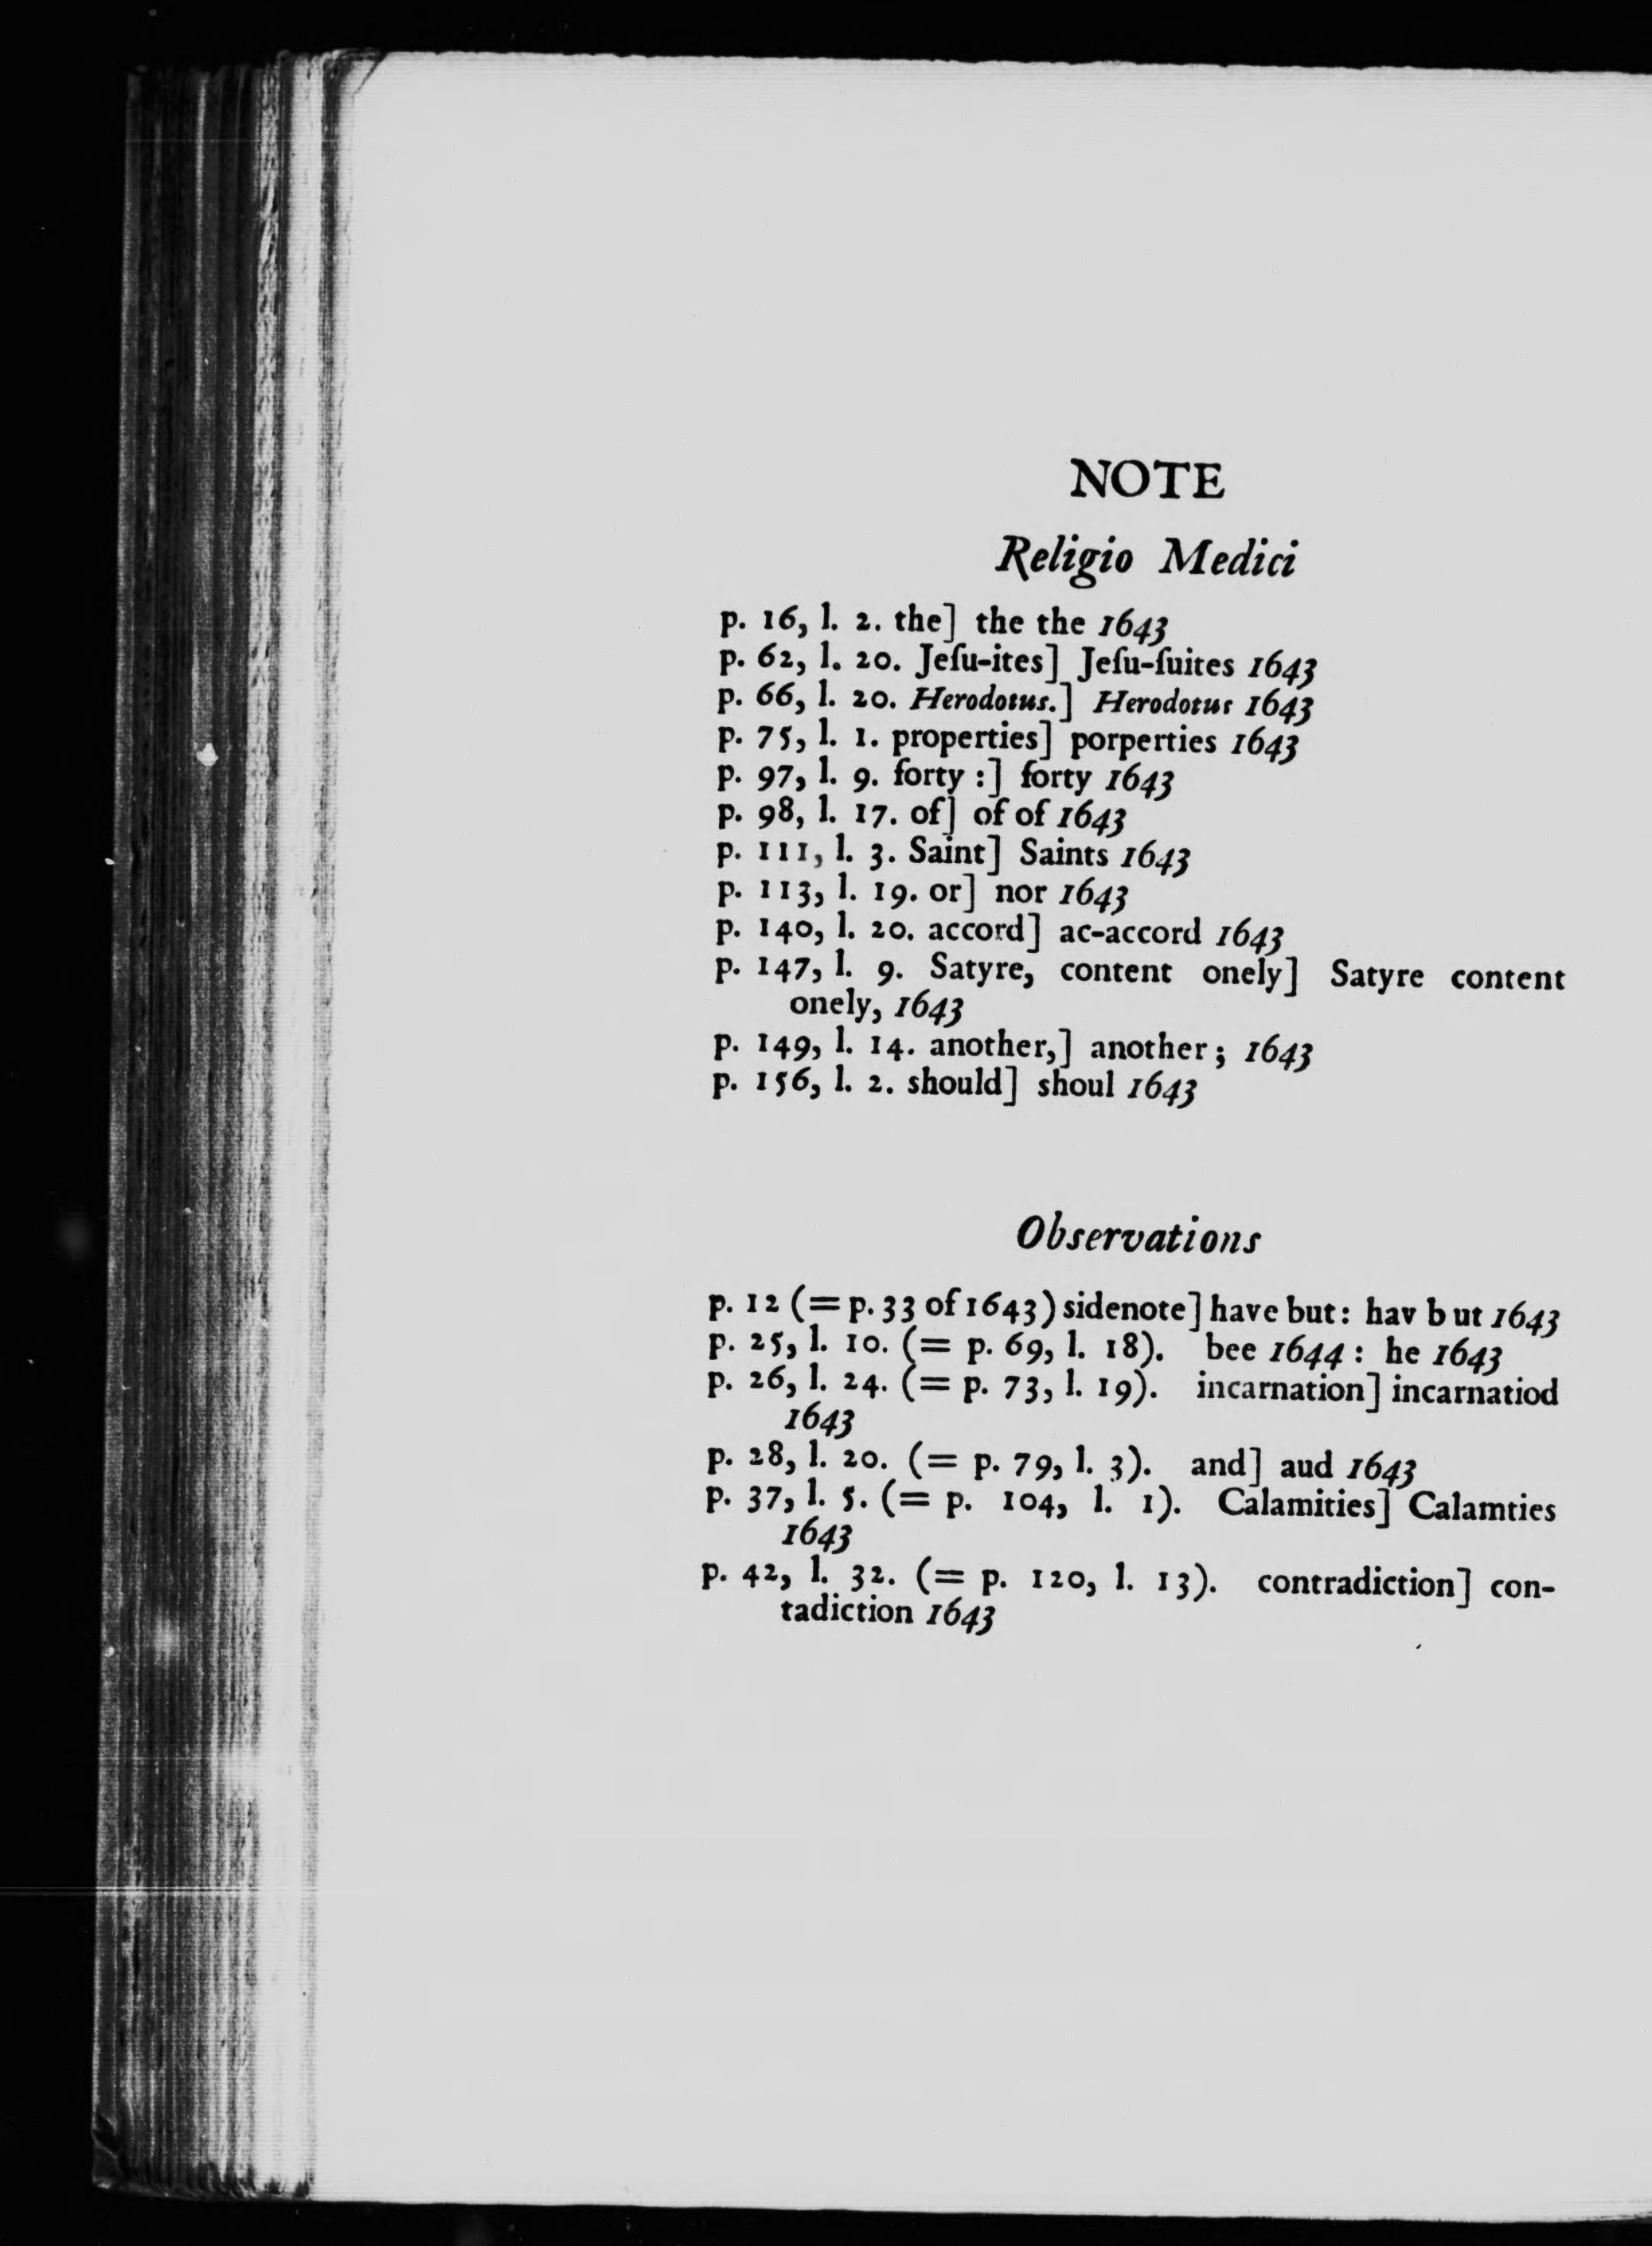 NOTE
Religio Medici
p. 16, l. 2. the] the the 1643
p. 62, l. 20. Jeſu-ites] Jeſu-ſuites 1643
p. 66, l. 20. Herodotus.] Herodotus 1643
p. 75, l. 1. properties] porperties 1643
p. 97, l. 9. forty :] forty 1643
p. 98, l. 17. of] of of 1643
p. 111, l. 3. Saint] Saints 1643
p. 113, l. 19. or] nor 1643
p. 140, l. 20. accord] ac-accord 1643
p. 147, l. 9. Satyre, content onely] Satyre content
onely, 1643
p. 149, l. 14. another,] another ; 1643
p. 156, l. 2. should] shoul 1643
Observations
p. 12 (= p. 33 of 1643) sidenote] have but: hav b ut 1643
p. 25, l. 10. (= p. 69, l. 18). bee 1644 : he 1643
p. 26, l. 24. (= p. 73, l. 19). incarnation] incarnatiod
1643
p. 28, l. 20. (= p. 79, l. 3). and] aud 1643
p. 37, l. 5. (= p. 104, l. 1). Calamities] Calamties
1643
p. 42, l. 32. (= p. 120, l. 13). contradiction] con-
tadiction 1643